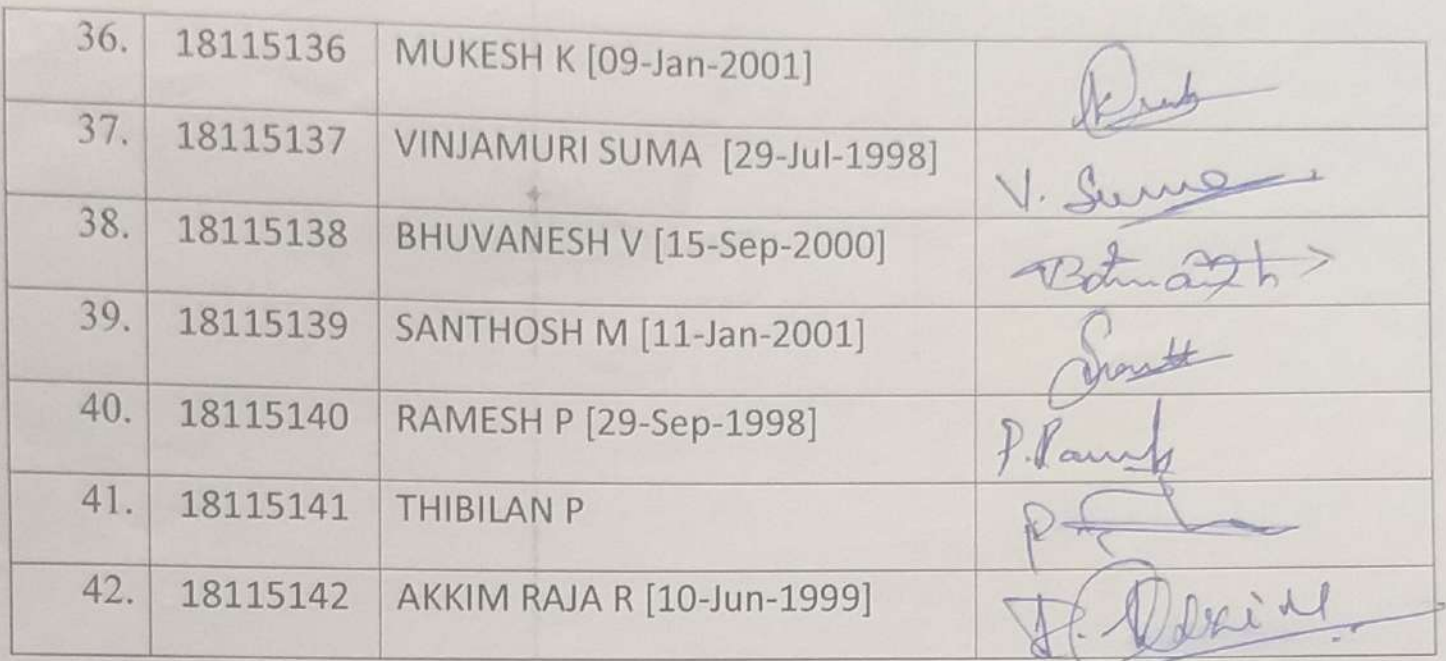 36. 18115136 MUKESH K [09-Jan-2001]
37. 18115137 VINJAMURI SUMA [29-Jul-1998] V. Suma
38. 18115138 BHUVANESH V [15-Sep-2000]
39. 18115139 SANTHOSH M [11-Jan-2001]
40. 18115140 RAMESH P [29-Sep-1998] P.
41. 18115141 THIBILAN P
42. 18115142 AKKIM RAJA R [10-Jun-1999]